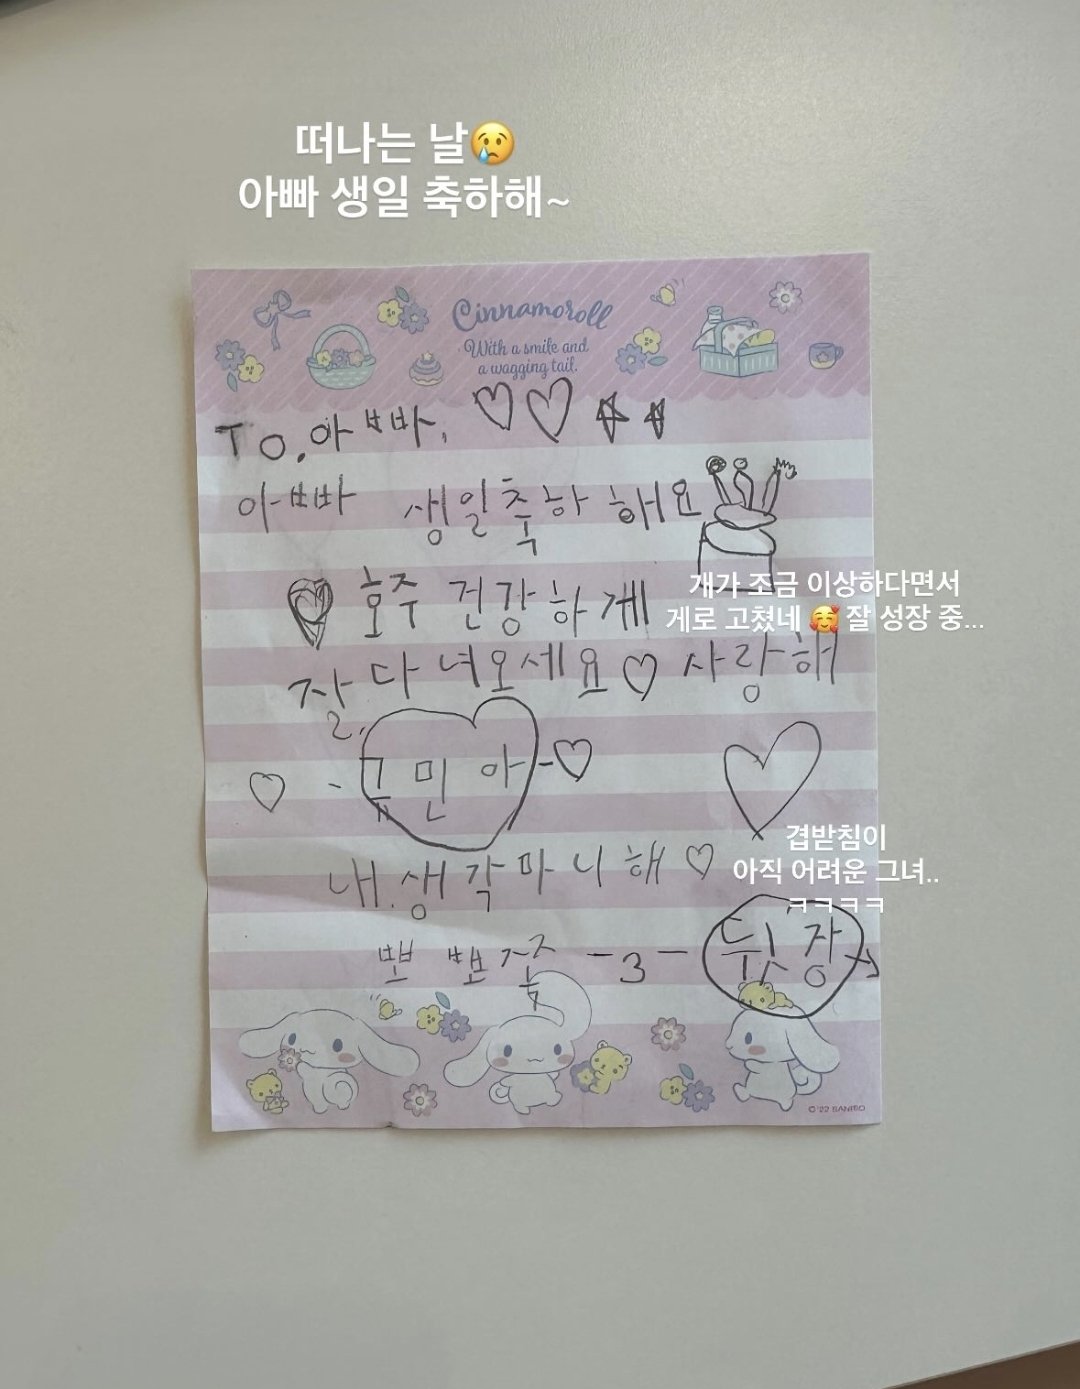 떠나는 날😢
아빠 생일 축하해~
Cinnamoroll
With a smile and
a wagging tail.
TO. 아빠, ♡♡☆☆
아빠 생일축하 해요
♡ 호주 건강하게
개가 조금 이상하다면서
게로 고쳤네 🥰 잘 성장 중...
잘 다녀오세요♡ 사랑해
♡ - 규민아-♡
겹받침이
아직 어려운 그녀..
ㅋㅋㅋㅋ
내 생각마니해♡
뽀뽀쭙 -3- 뒷장→
© '22 SANRIO